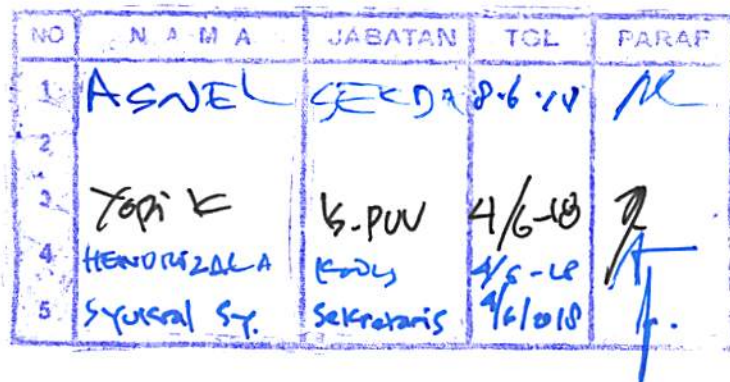 NO NAMA JABATAN TGL PARAF
1 ASNEL SEKDA 8-6-18
2
3 Yopi K K-PUU 4/6-18
4 HENDRIZAL A 4/6-18
5 Syukral Sy. Sekretaris 4/6/2018